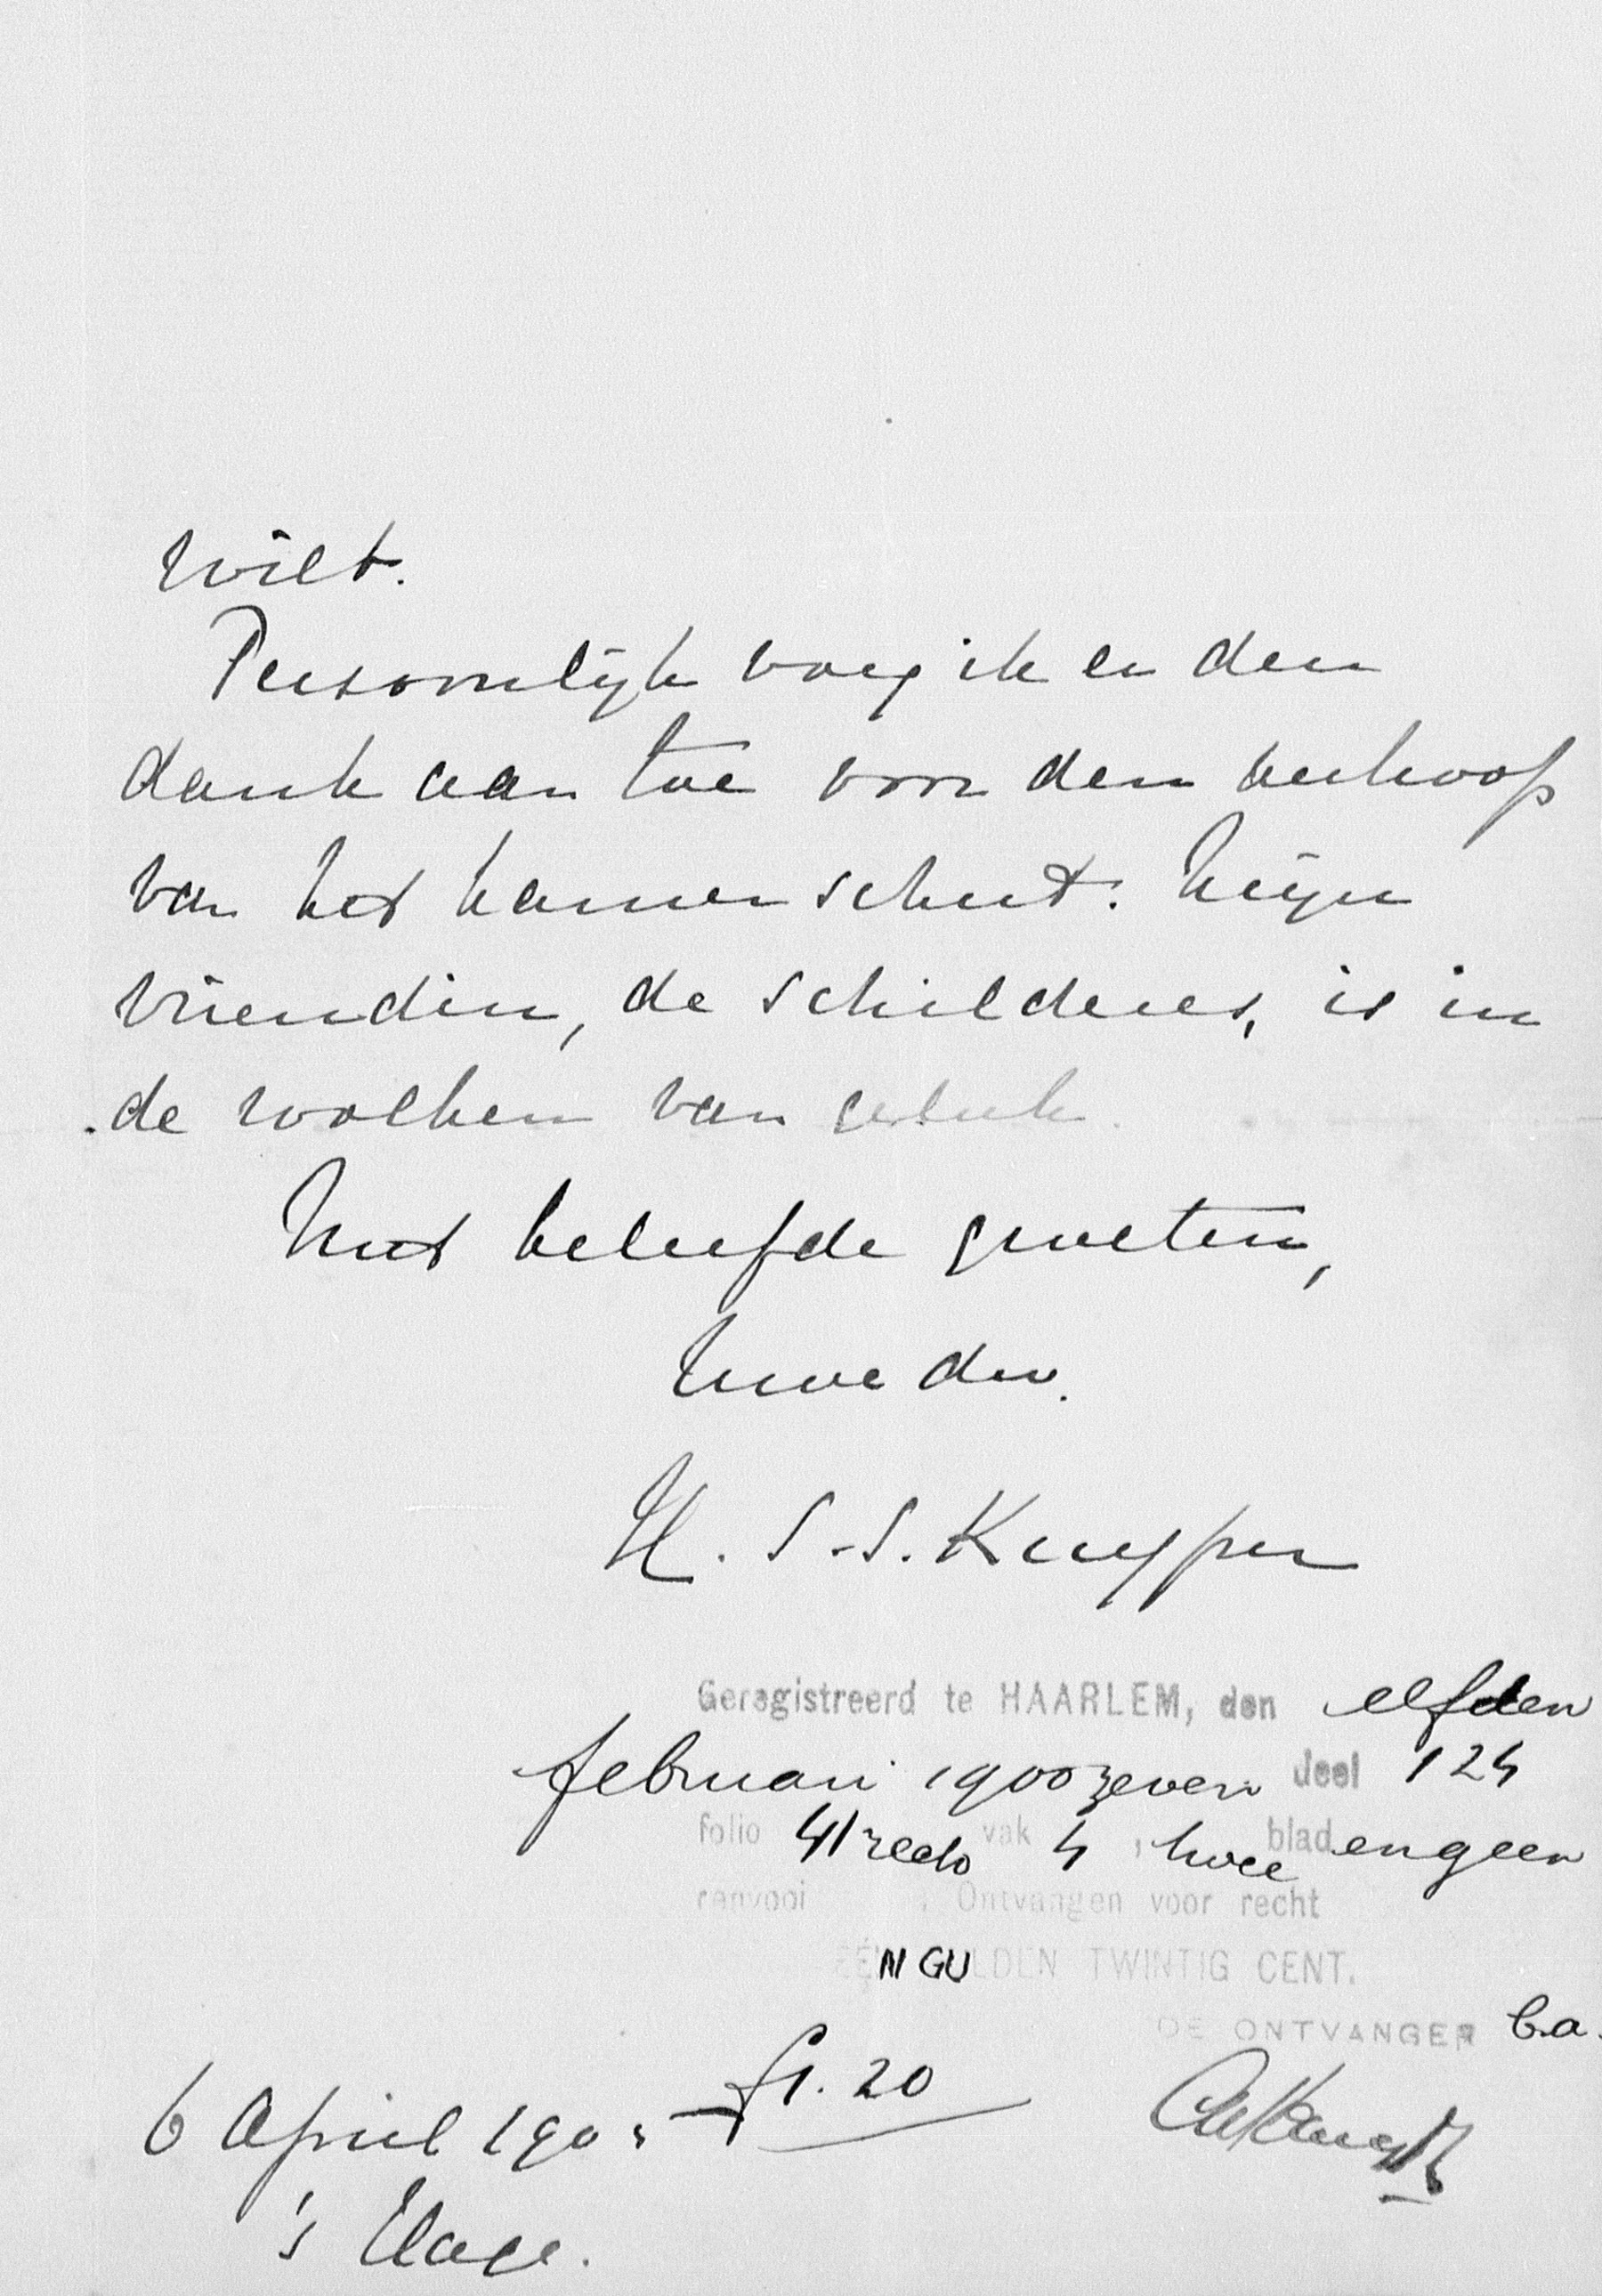 wilt.
Persoonlijk voeg ik er den
dank aan toe voor den verkoop
van het kamerschut. Mijn
vriendin, de schilderes, is in
de wolken van geluk.
Met beleefde groeten,
Uwe dw.
H. S. S. Kuyper
Geregistreerd te HAARLEM, den elfden
februari 1900 zeven deel 124
folio 41 recto vak 4, twee blad en geen
renvooi. Ontvangen voor recht
ÉÉN GULDEN TWINTIG CENT.
DE ONTVANGER b.a.
f1.20
6 April 190
's Hage.